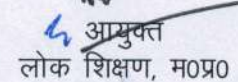 आयुक्त
लोक शिक्षण, म०प्र०